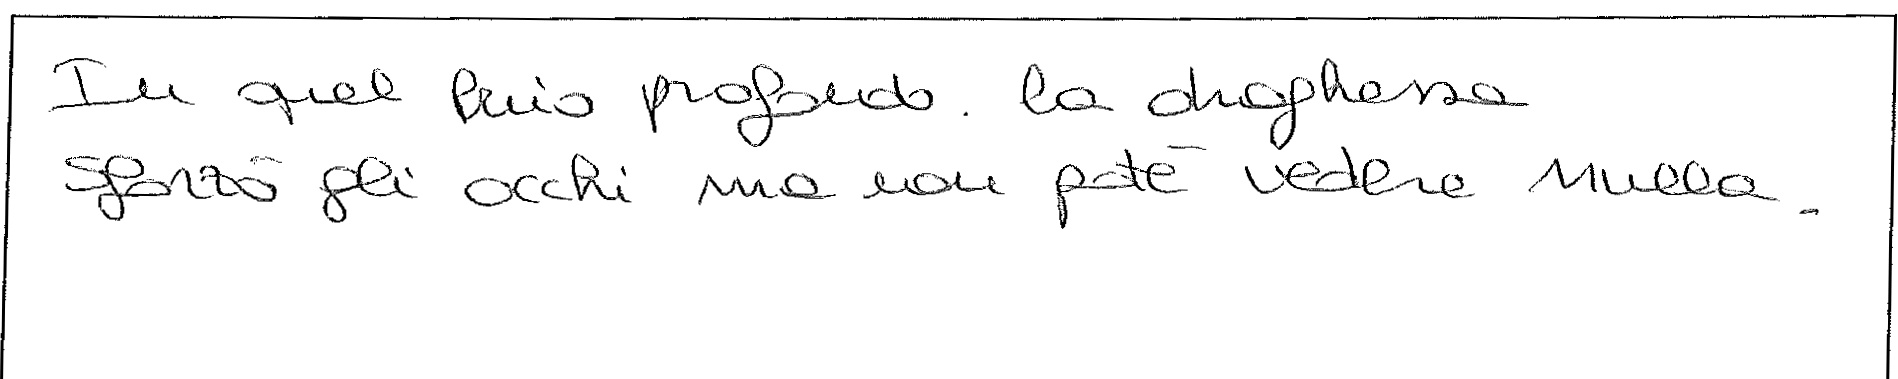 In quel buio profondo. la draghessa
sforzò gli occhi ma non poté vedere nulla.